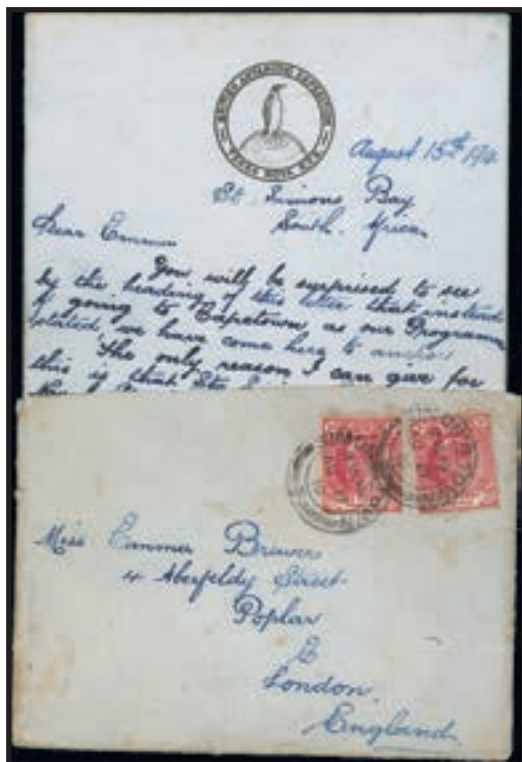 BRITISH ANTARCTIC EXPEDITION
TERRA NOVA R.Y.S.
August 15th 1910
St Simons Bay
South Africa
Dear Emmer
You will be surprised to see
by the heading of this letter that instead
of going to Capetown, as our Programme
stated, we have come here to
The only reason I can give for
this is that
Miss Emmer Brewer
4 Aberfeldy Street
Poplar
E
London
England